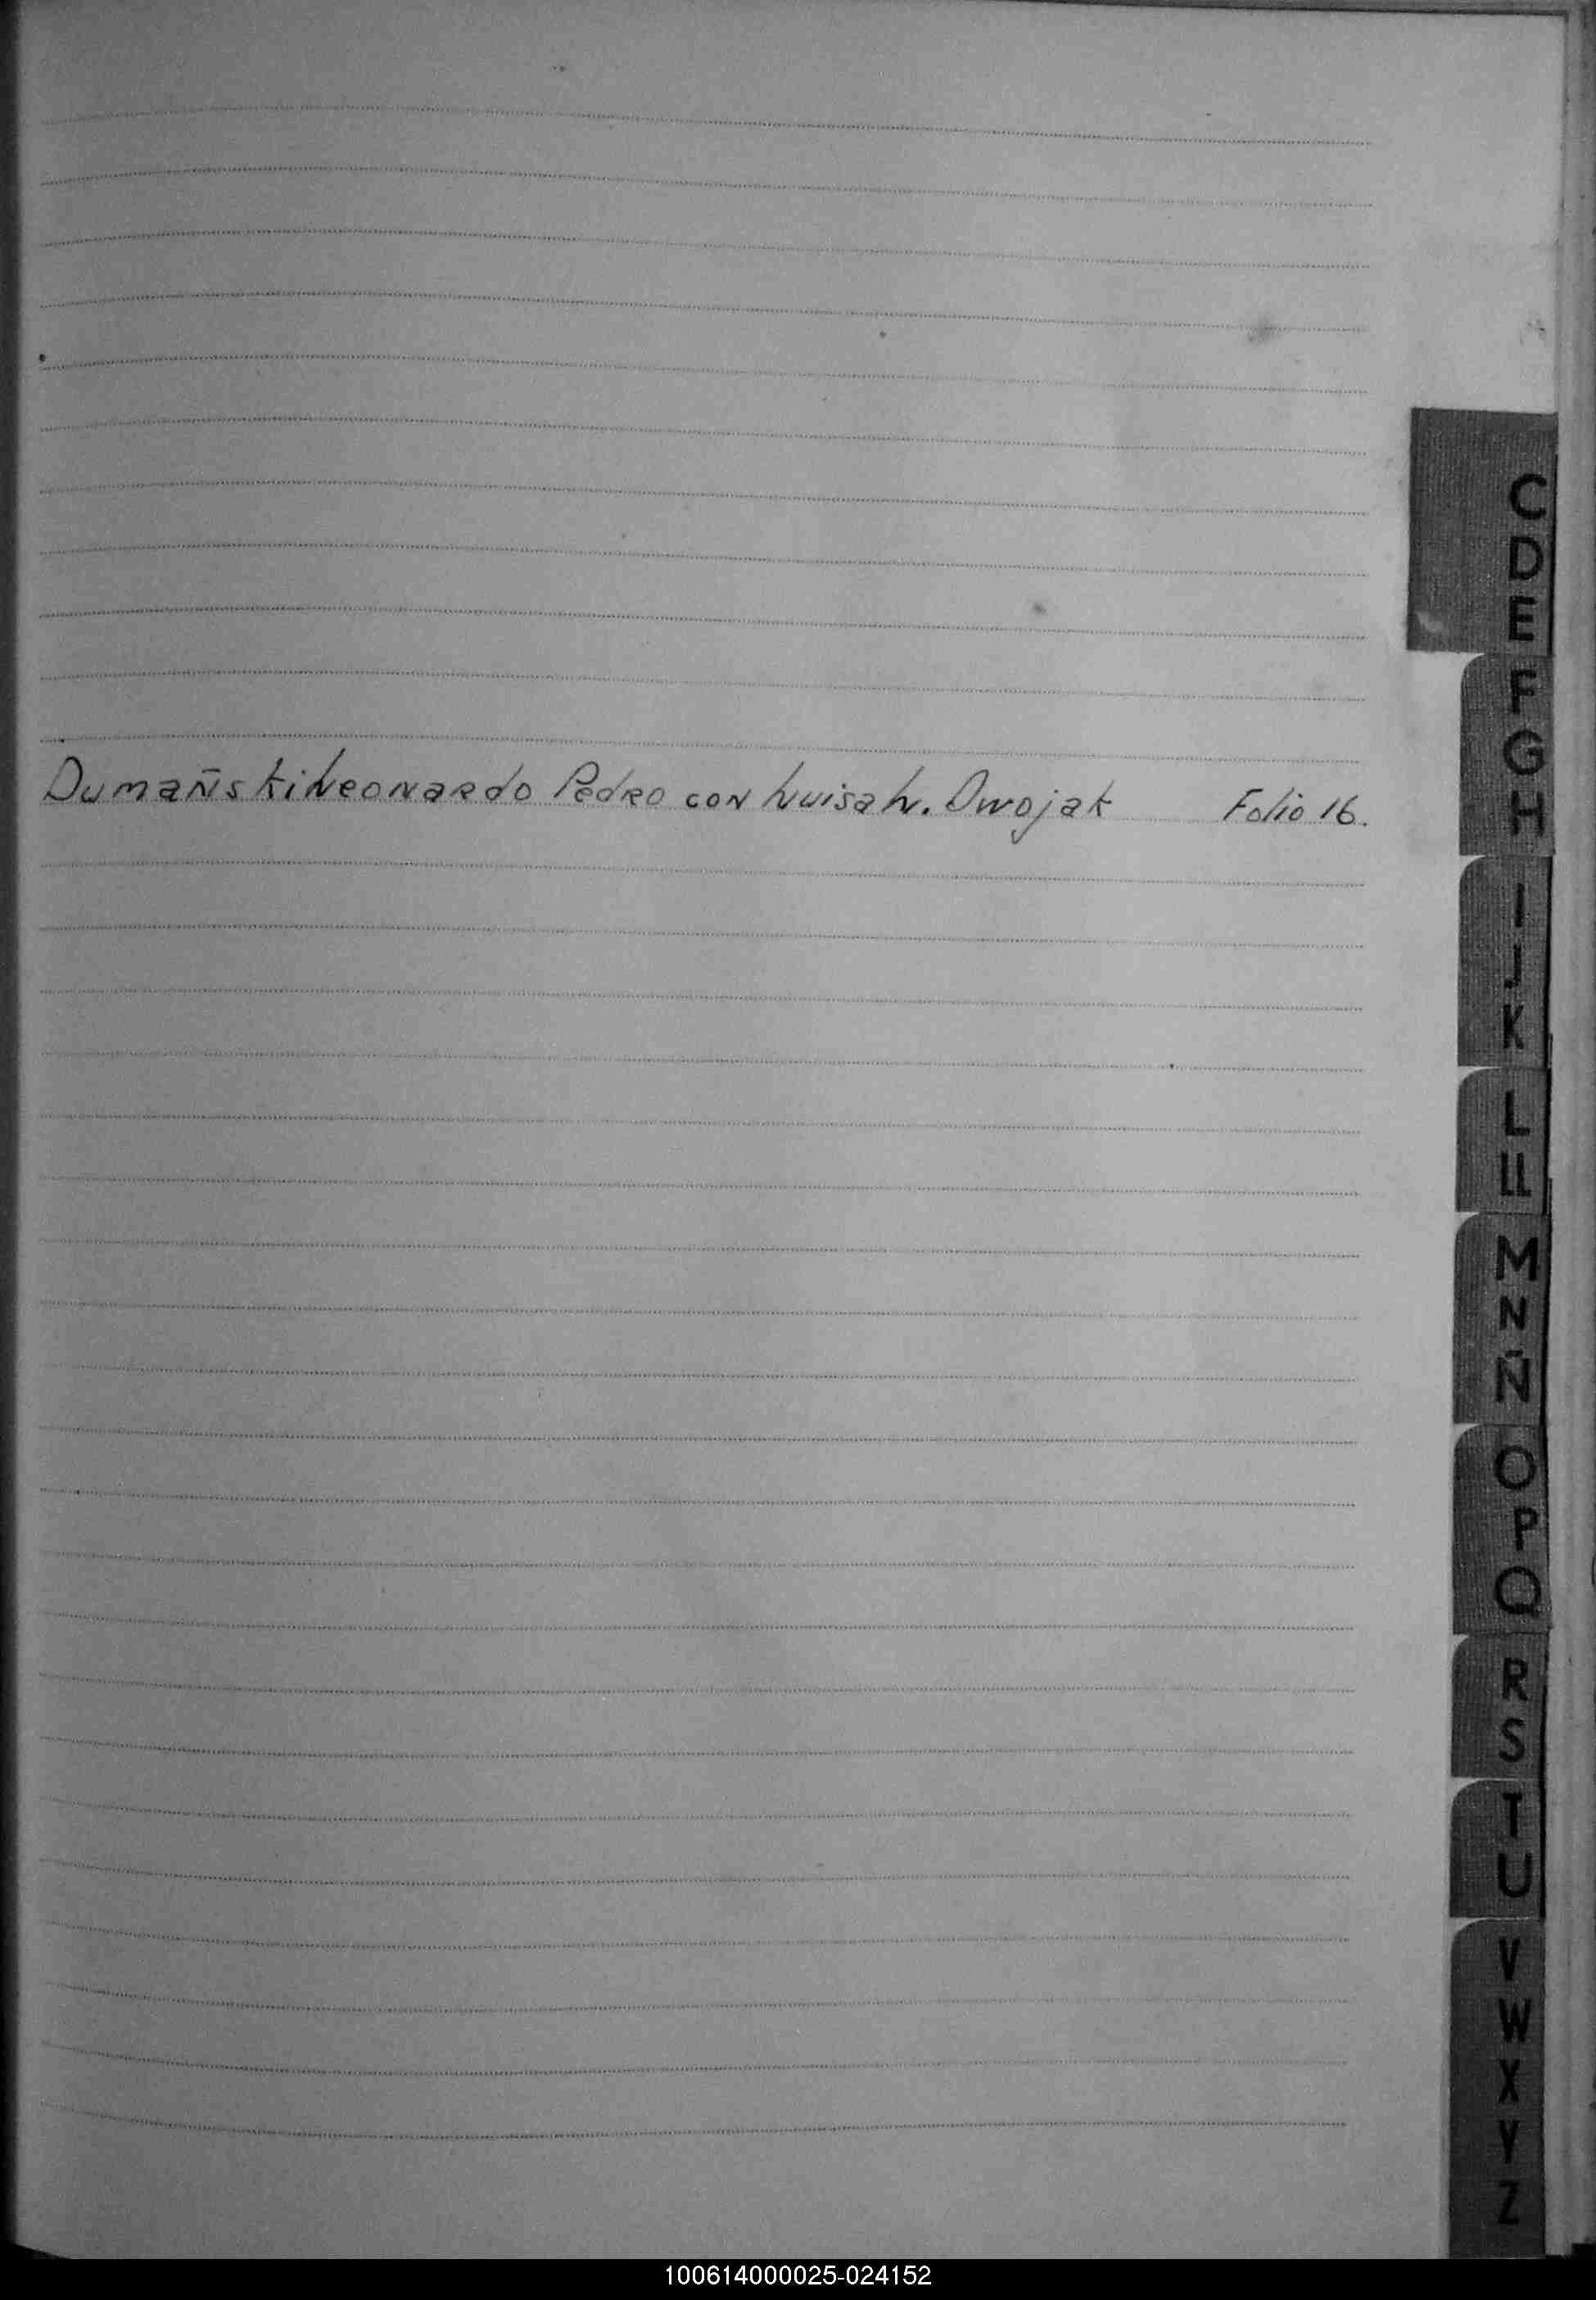 C
D
E
F
G
H
I
J
K
L
LL
M
N
Ñ
O
P
Q
R
S
T
U
V
W
X
Y
Z
Dumañski Leonardo Pedro con Luisa L. Dwojak Folio 16.
100614000025-024152